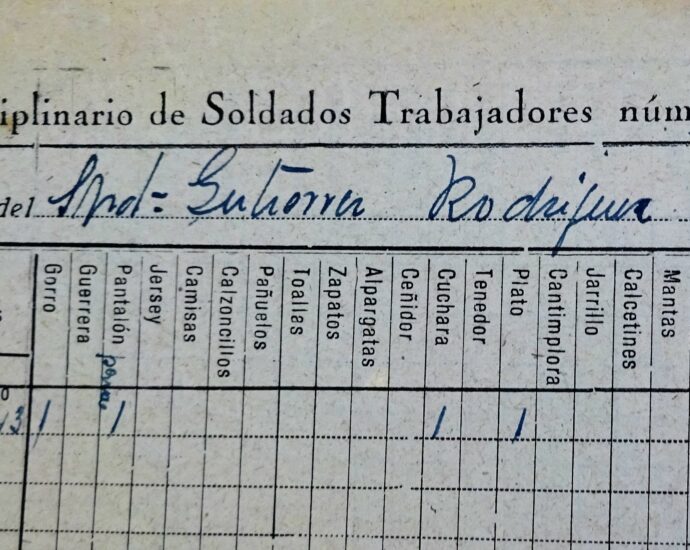 iplinario de Soldados Trabajadores núm
del Gutiérrez Rodríguez
Gorro Guerrera Pantalón Jersey Camisas Calzoncillos Pañuelos Toallas Zapatos Alpargatas Ceñidor Cuchara Tenedor Plato Cantimplora Jarrillo Calcetines Mantas
1 1 1 1